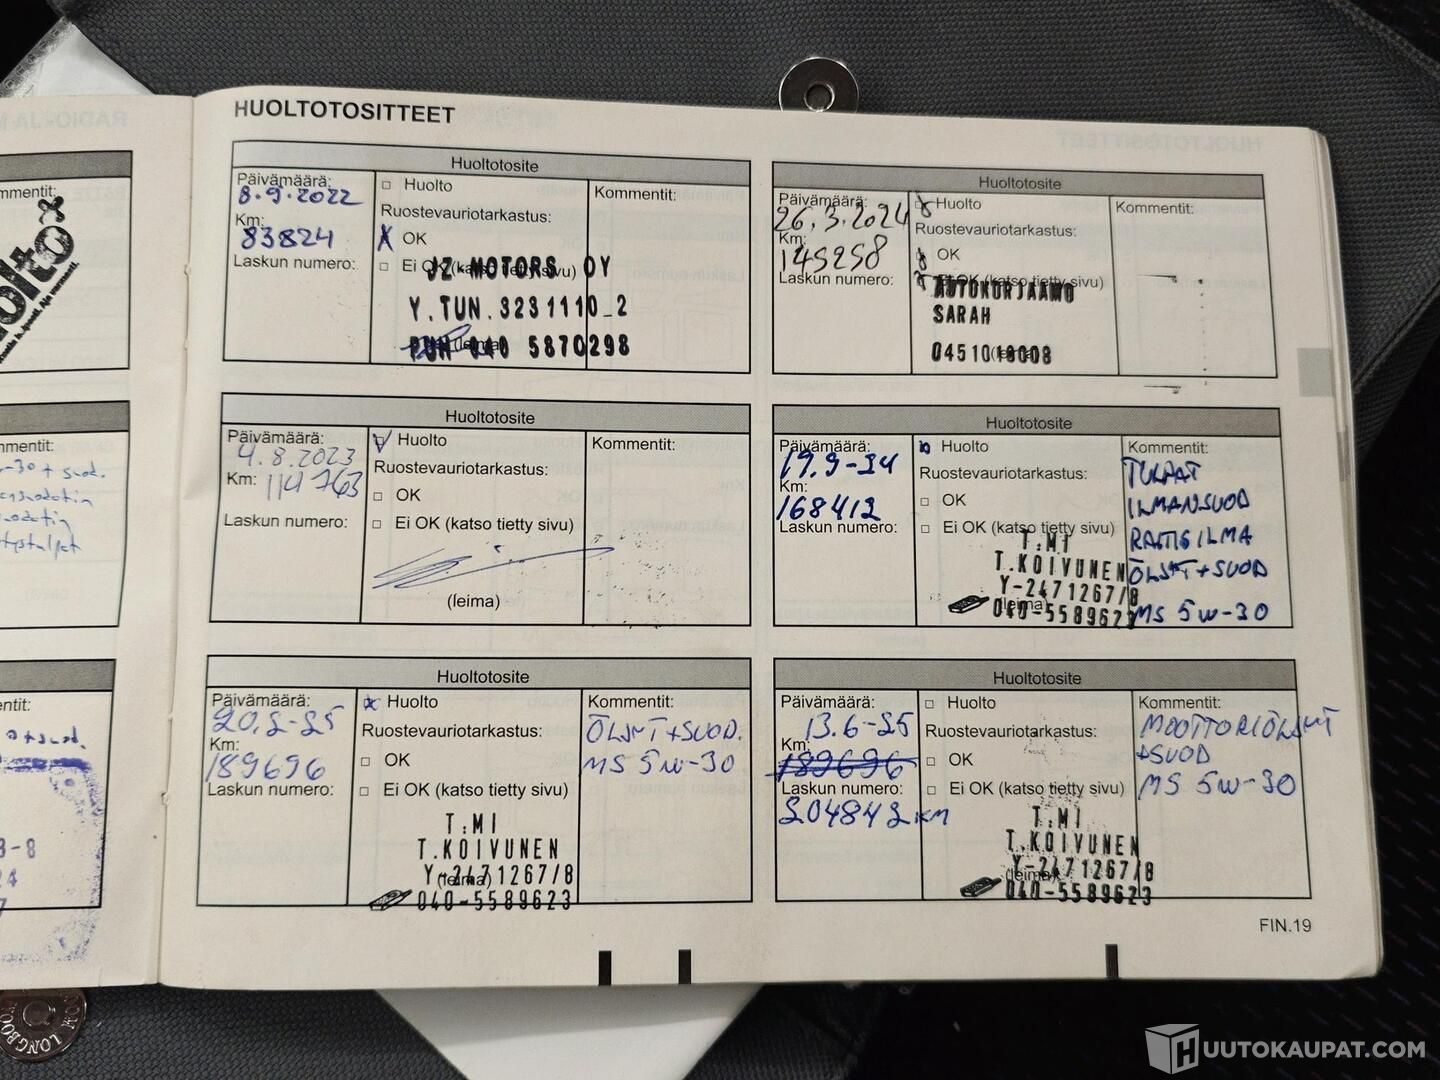 HUOLTOTOSITTEET
mmentit:
Huoltotosite
Päivämäärä:
8.9.2022
Km:
83824
Laskun numero:
Huolto
Ruostevauriotarkastus:
OK
Ei OK (katso tietty sivu)
JZ MOTORS OY
Y.TUN.3231110_2
PUH 040 5870298
(leima)
Kommentit:
Huoltotosite
Päivämäärä:
26.3.2024
Km:
145258
Laskun numero:
Huolto
Ruostevauriotarkastus:
OK
Ei OK (katso tietty sivu)
AUTOKORJAAMO
SARAH
0451010008
Kommentit:
mmentit:
Huoltotosite
Päivämäärä:
4.8.2023
Km:
114763
Laskun numero:
Huolto
Ruostevauriotarkastus:
OK
Ei OK (katso tietty sivu)
(leima)
Kommentit:
Huoltotosite
Päivämäärä:
19.9-24
Km:
168412
Laskun numero:
Huolto
Ruostevauriotarkastus:
OK
Ei OK (katso tietty sivu)
T:MI
T.KOIVUNEN
Y-2471267/8
(leima)
040-5589623
Kommentit:
TULPAT
ILMANSUOD
RAITISILMA
ÖLJYT+SUOD
MS 5W-30
Huoltotosite
Päivämäärä:
20.2-25
Km:
189696
Laskun numero:
Huolto
Ruostevauriotarkastus:
OK
Ei OK (katso tietty sivu)
T:MI
T.KOIVUNEN
Y-2471267/8
(leima)
040-5589623
Kommentit:
ÖLJYT+SUOD.
MS 5W-30
Huoltotosite
Päivämäärä:
13.6-25
Km:
189696
Laskun numero:
204842 KM
Huolto
Ruostevauriotarkastus:
OK
Ei OK (katso tietty sivu)
T:MI
T.KOIVUNEN
Y-2471267/8
(leima)
040-5589623
Kommentit:
MOOTTORIÖLJYT
+SUOD
MS 5W-30
FIN.19
HUUTOKAUPAT.COM